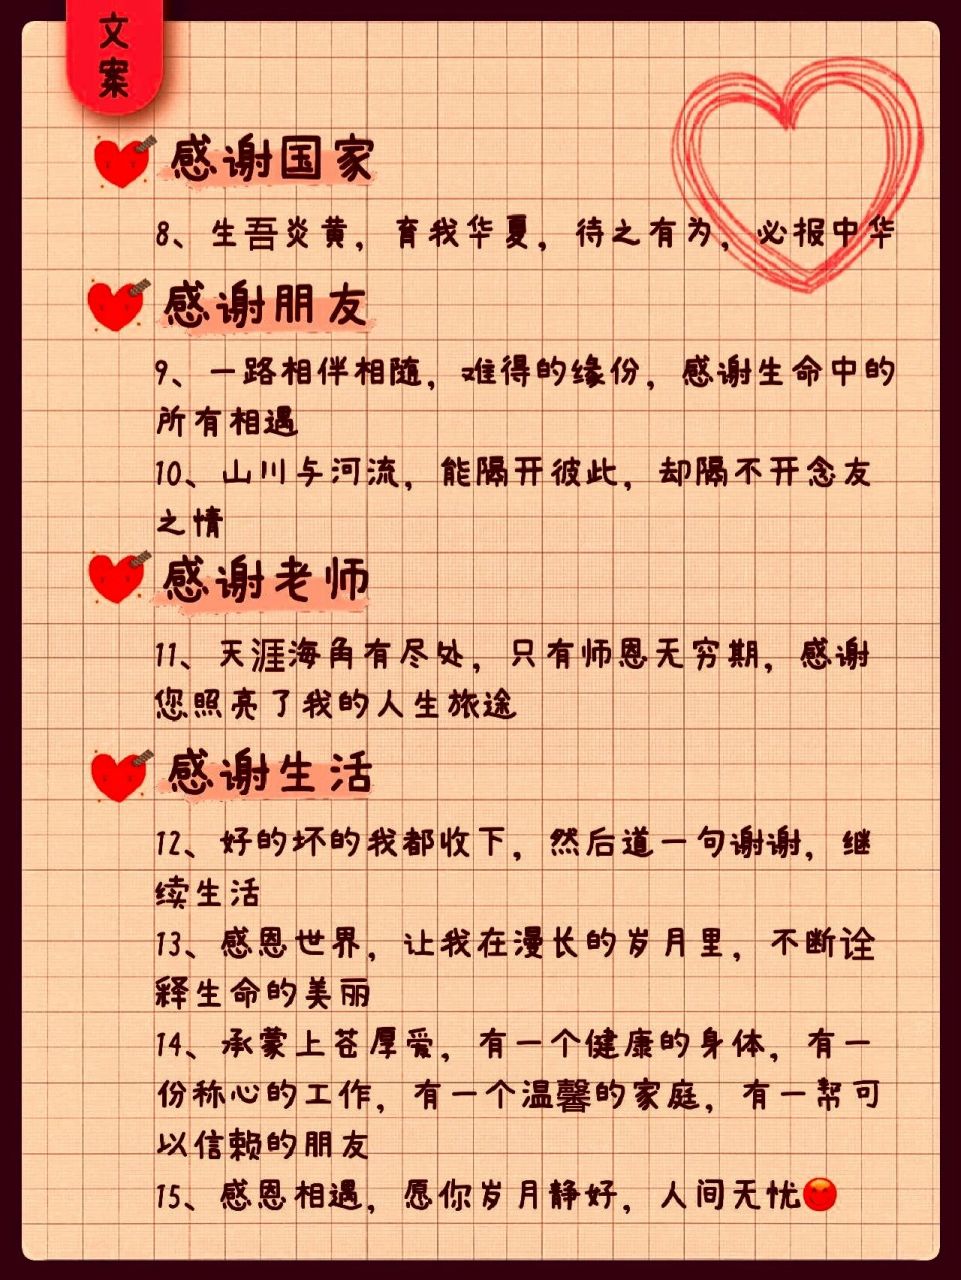 文案
感谢国家
8、生吾炎黄，育我华夏，待之有为，必报中华
感谢朋友
9、一路相伴相随，难得的缘份，感谢生命中的
所有相遇
10、山川与河流，能隔开彼此，却隔不开念友
之情
感谢老师
11、天涯海角有尽处，只有师恩无穷期，感谢
您照亮了我的人生旅途
感谢生活
12、好的坏的我都收下，然后道一句谢谢，继
续生活
13、感恩世界，让我在漫长的岁月里，不断诠
释生命的美丽
14、承蒙上苍厚爱，有一个健康的身体，有一
份称心的工作，有一个温馨的家庭，有一帮可
以信赖的朋友
15、感恩相遇，愿你岁月静好，人间无忧